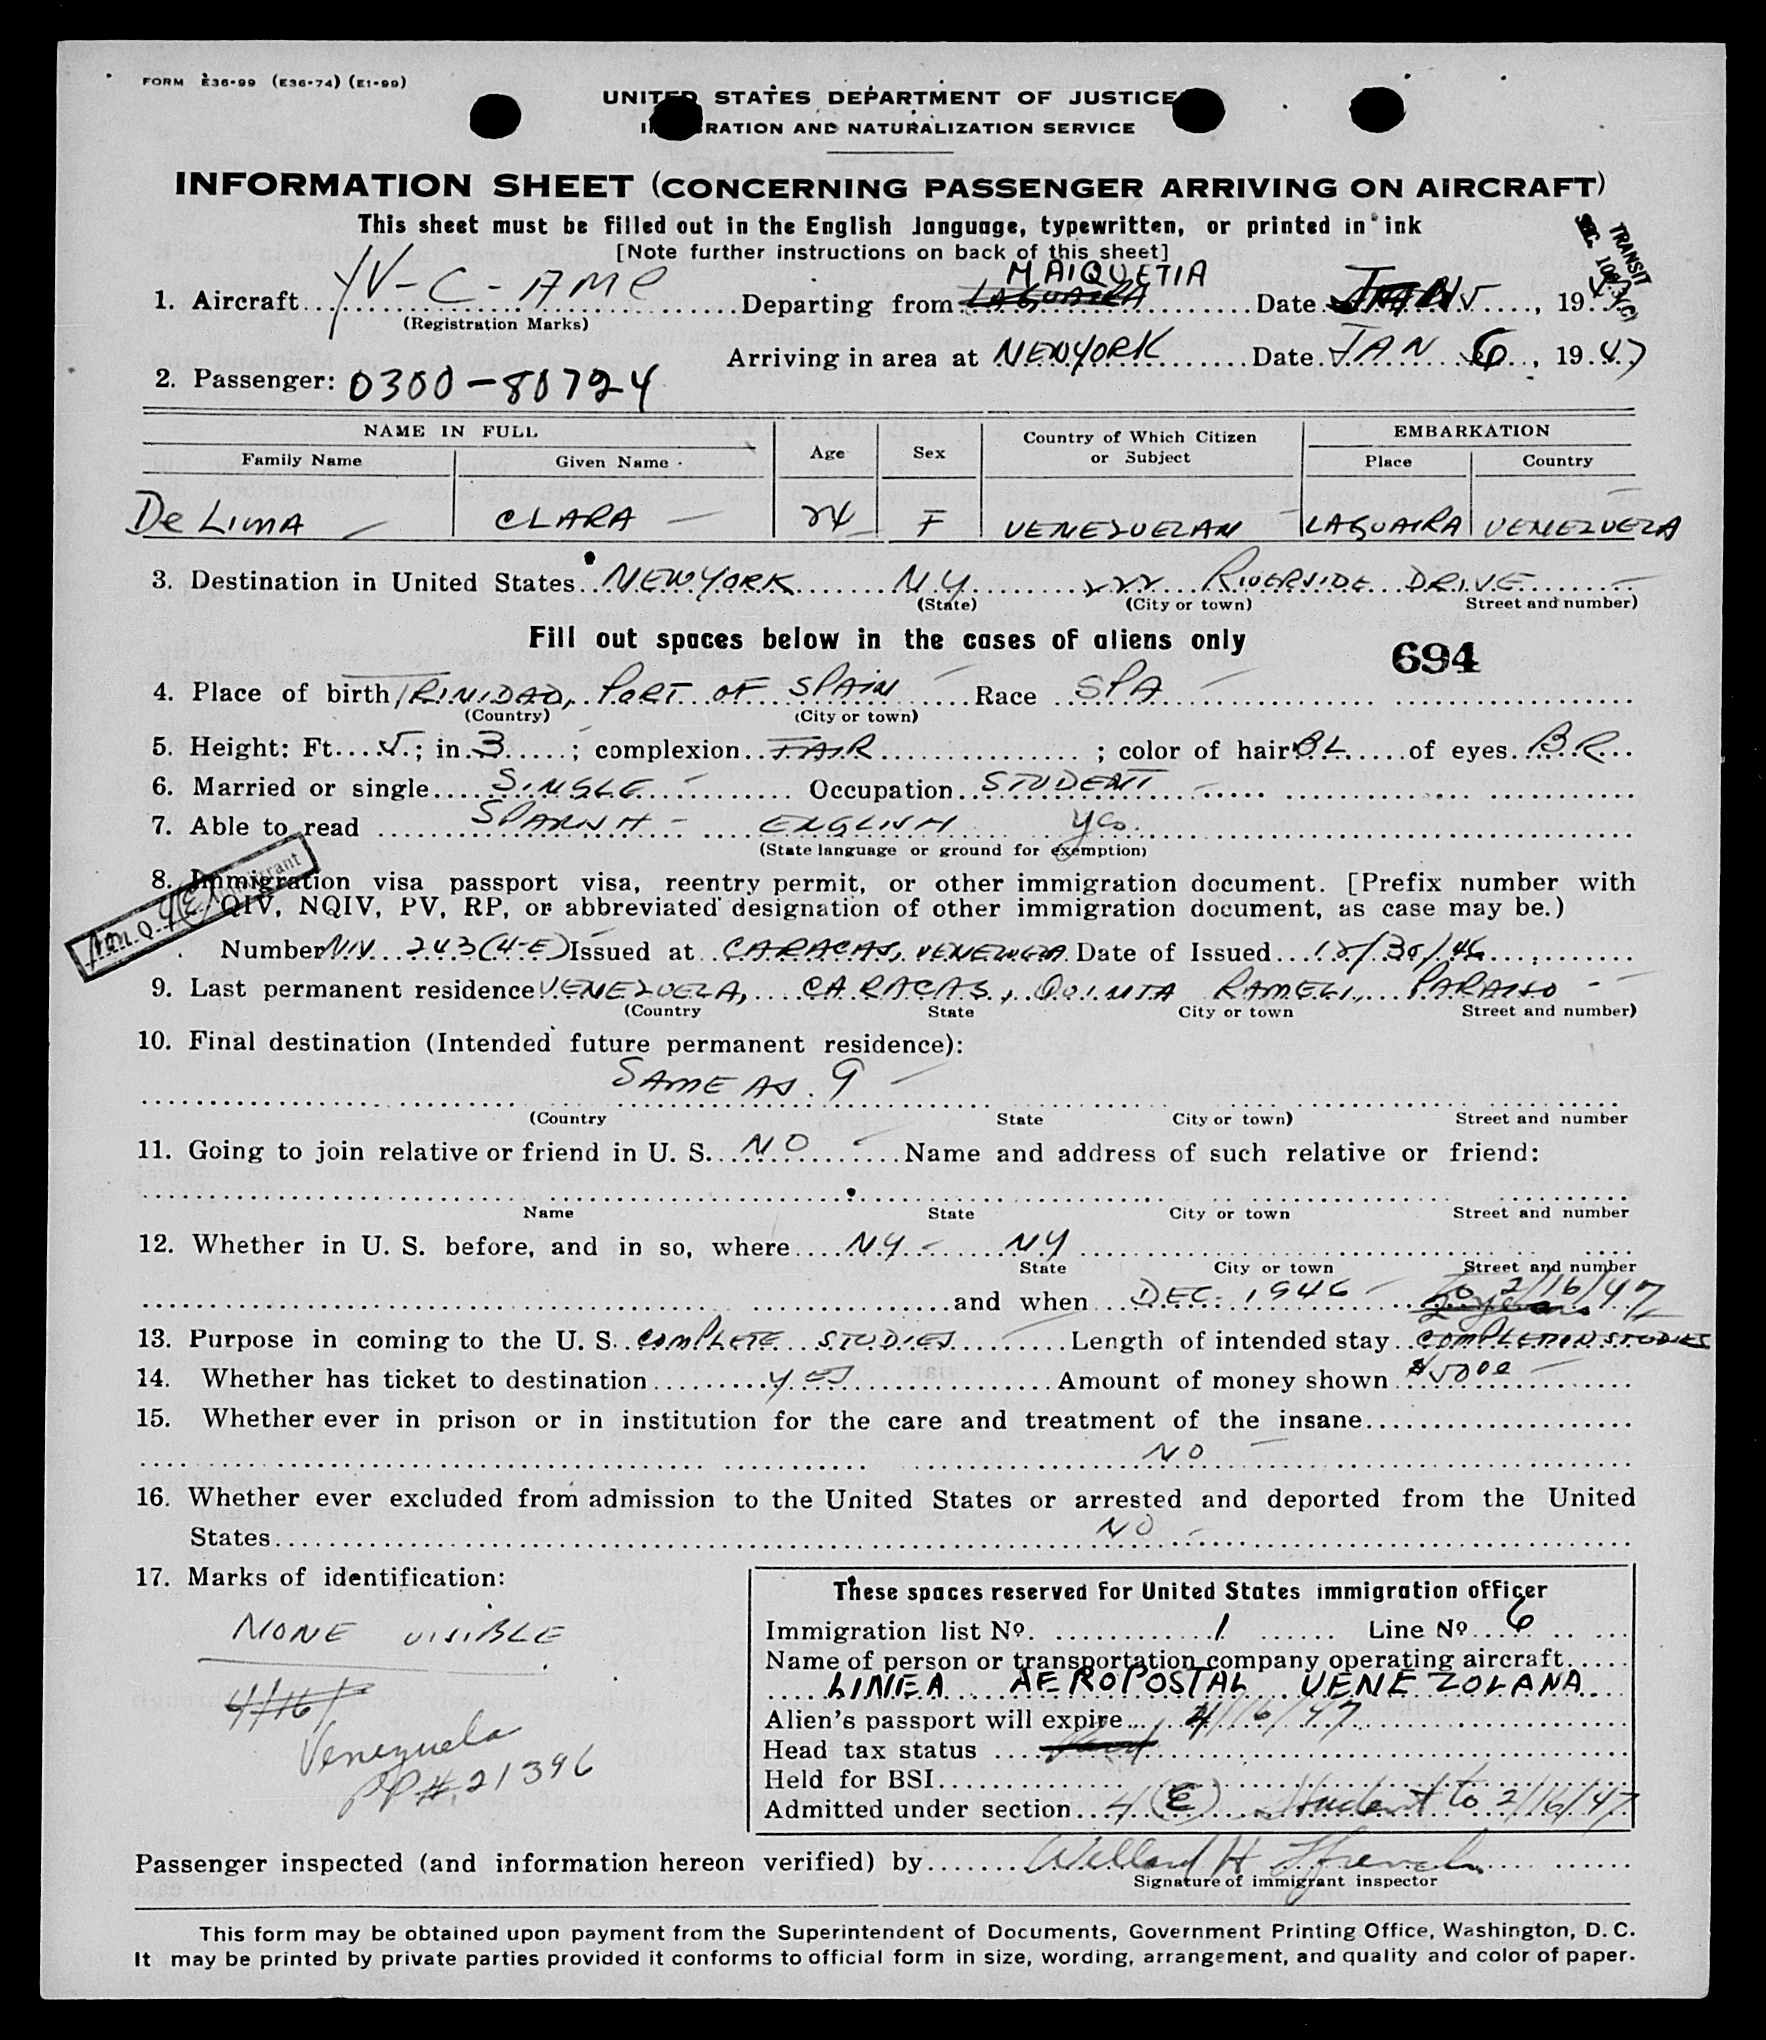 FORM E36-99 (E36-74) (E1-99)
UNITED STATES DEPARTMENT OF JUSTICE
RATION AND NATURALIZATION SERVICE
INFORMATION SHEET (CONCERNING PASSENGER ARRIVING ON AIRCRAFT)
This sheet must be filled out in the English language, typewritten, or printed in ink
[Note further instructions on back of this sheet]
TRANSIT
MAIQUETIA
1. Aircraft YV-C-AME Departing from LAGUAIRA Date JAN 5, 1947
(Registration Marks)
Arriving in area at NEWYORK Date JAN 6, 1947
2. Passenger: 0300-80724
NAME IN FULL Age Sex Country of Which Citizen or Subject EMBARKATION
Family Name Given Name Place Country
De LIMA CLARA 24 F VENEZUELAN LAGUAIRA VENEZUELA
3. Destination in United States NEWYORK N.Y. 222 RIVERSIDE DRIVE
(State) (City or town) Street and number)
Fill out spaces below in the cases of aliens only
694
4. Place of birth TRINIDAD, PORT OF SPAIN Race SPA
(Country) (City or town)
5. Height: Ft. 5; in. 3; complexion FAIR; color of hair BL of eyes BR
6. Married or single SINGLE Occupation STUDENT
7. Able to read SPANISH - ENGLISH yes
(State language or ground for exemption)
8. Immigration visa passport visa, reentry permit, or other immigration document. [Prefix number with
QIV, NQIV, PV, RP, or abbreviated designation of other immigration document, as case may be.)
Number NIV 243 (4-E) Issued at CARACAS, VENEZUELA Date of Issued 12/30/46
9. Last permanent residence VENEZUELA, CARACAS, QUINTA RAMELI, PARAISO
(Country State City or town Street and number)
10. Final destination (Intended future permanent residence):
SAME AS 9
(Country State City or town) Street and number
11. Going to join relative or friend in U. S. NO Name and address of such relative or friend:
Name State City or town Street and number
12. Whether in U. S. before, and in so, where N.Y. - N.Y
State City or town Street and number
and when DEC. 1946 To 2/16/47
13. Purpose in coming to the U. S. COMPLETE STUDIES Length of intended stay COMPLETION STUDIES
14. Whether has ticket to destination YES Amount of money shown $5000
15. Whether ever in prison or in institution for the care and treatment of the insane
NO
16. Whether ever excluded from admission to the United States or arrested and deported from the United
States NO
17. Marks of identification:
NONE VISIBLE
4/16/
Venezuela
PP#21396
These spaces reserved for United States immigration officer
Immigration list No. 1 Line No 6
Name of person or transportation company operating aircraft
LINEA AEROPOSTAL VENEZOLANA
Alien's passport will expire 4/16/47
Head tax status
Held for BSI
Admitted under section 4(E) Student to 2/16/47
Passenger inspected (and information hereon verified) by Willard H Ffrench
Signature of immigrant inspector
This form may be obtained upon payment from the Superintendent of Documents, Government Printing Office, Washington, D. C.
It may be printed by private parties provided it conforms to official form in size, wording, arrangement, and quality and color of paper.